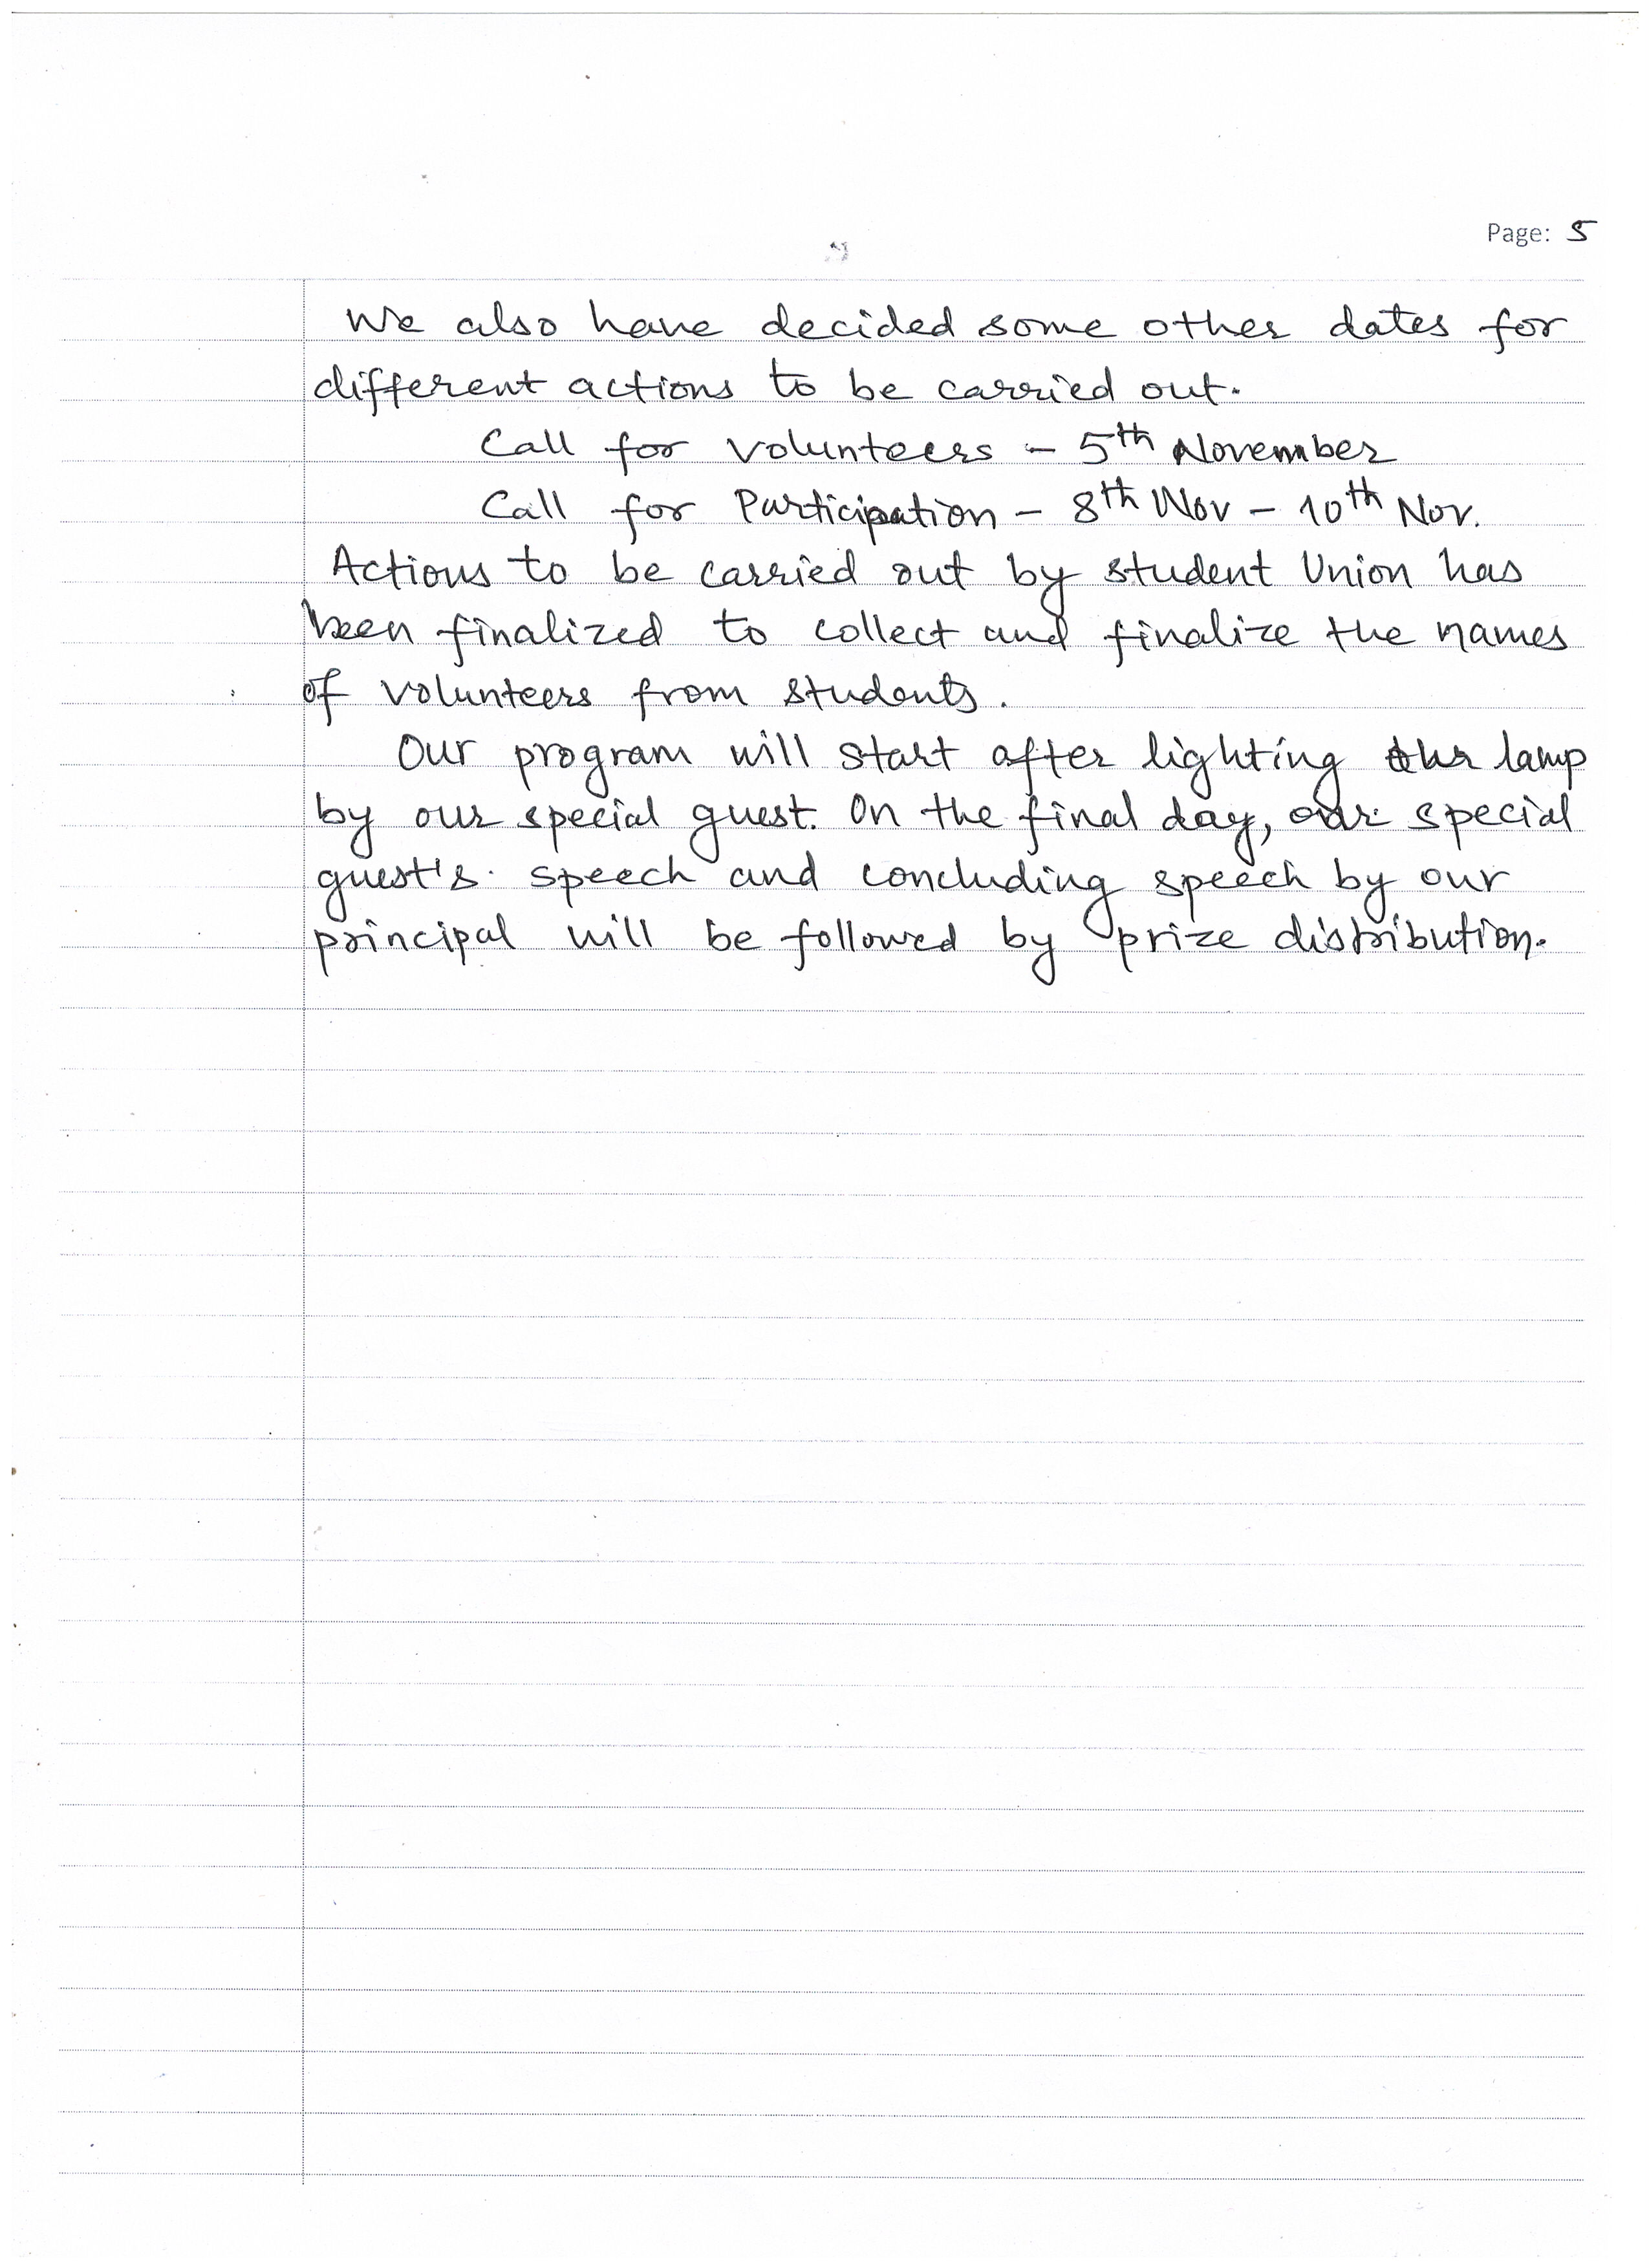 Page: 5
We also have decided some other dates for
different actions to be carried out.
Call for volunteers - 5th November
Call for Participation - 8th Nov - 10th Nov.
Actions to be carried out by student Union has
been finalized to collect and finalize the names
of volunteers from students.
Our program will start after lighting the lamp
by our special guest. On the final day, our special
guest's speech and concluding speech by our
principal will be followed by prize distribution.